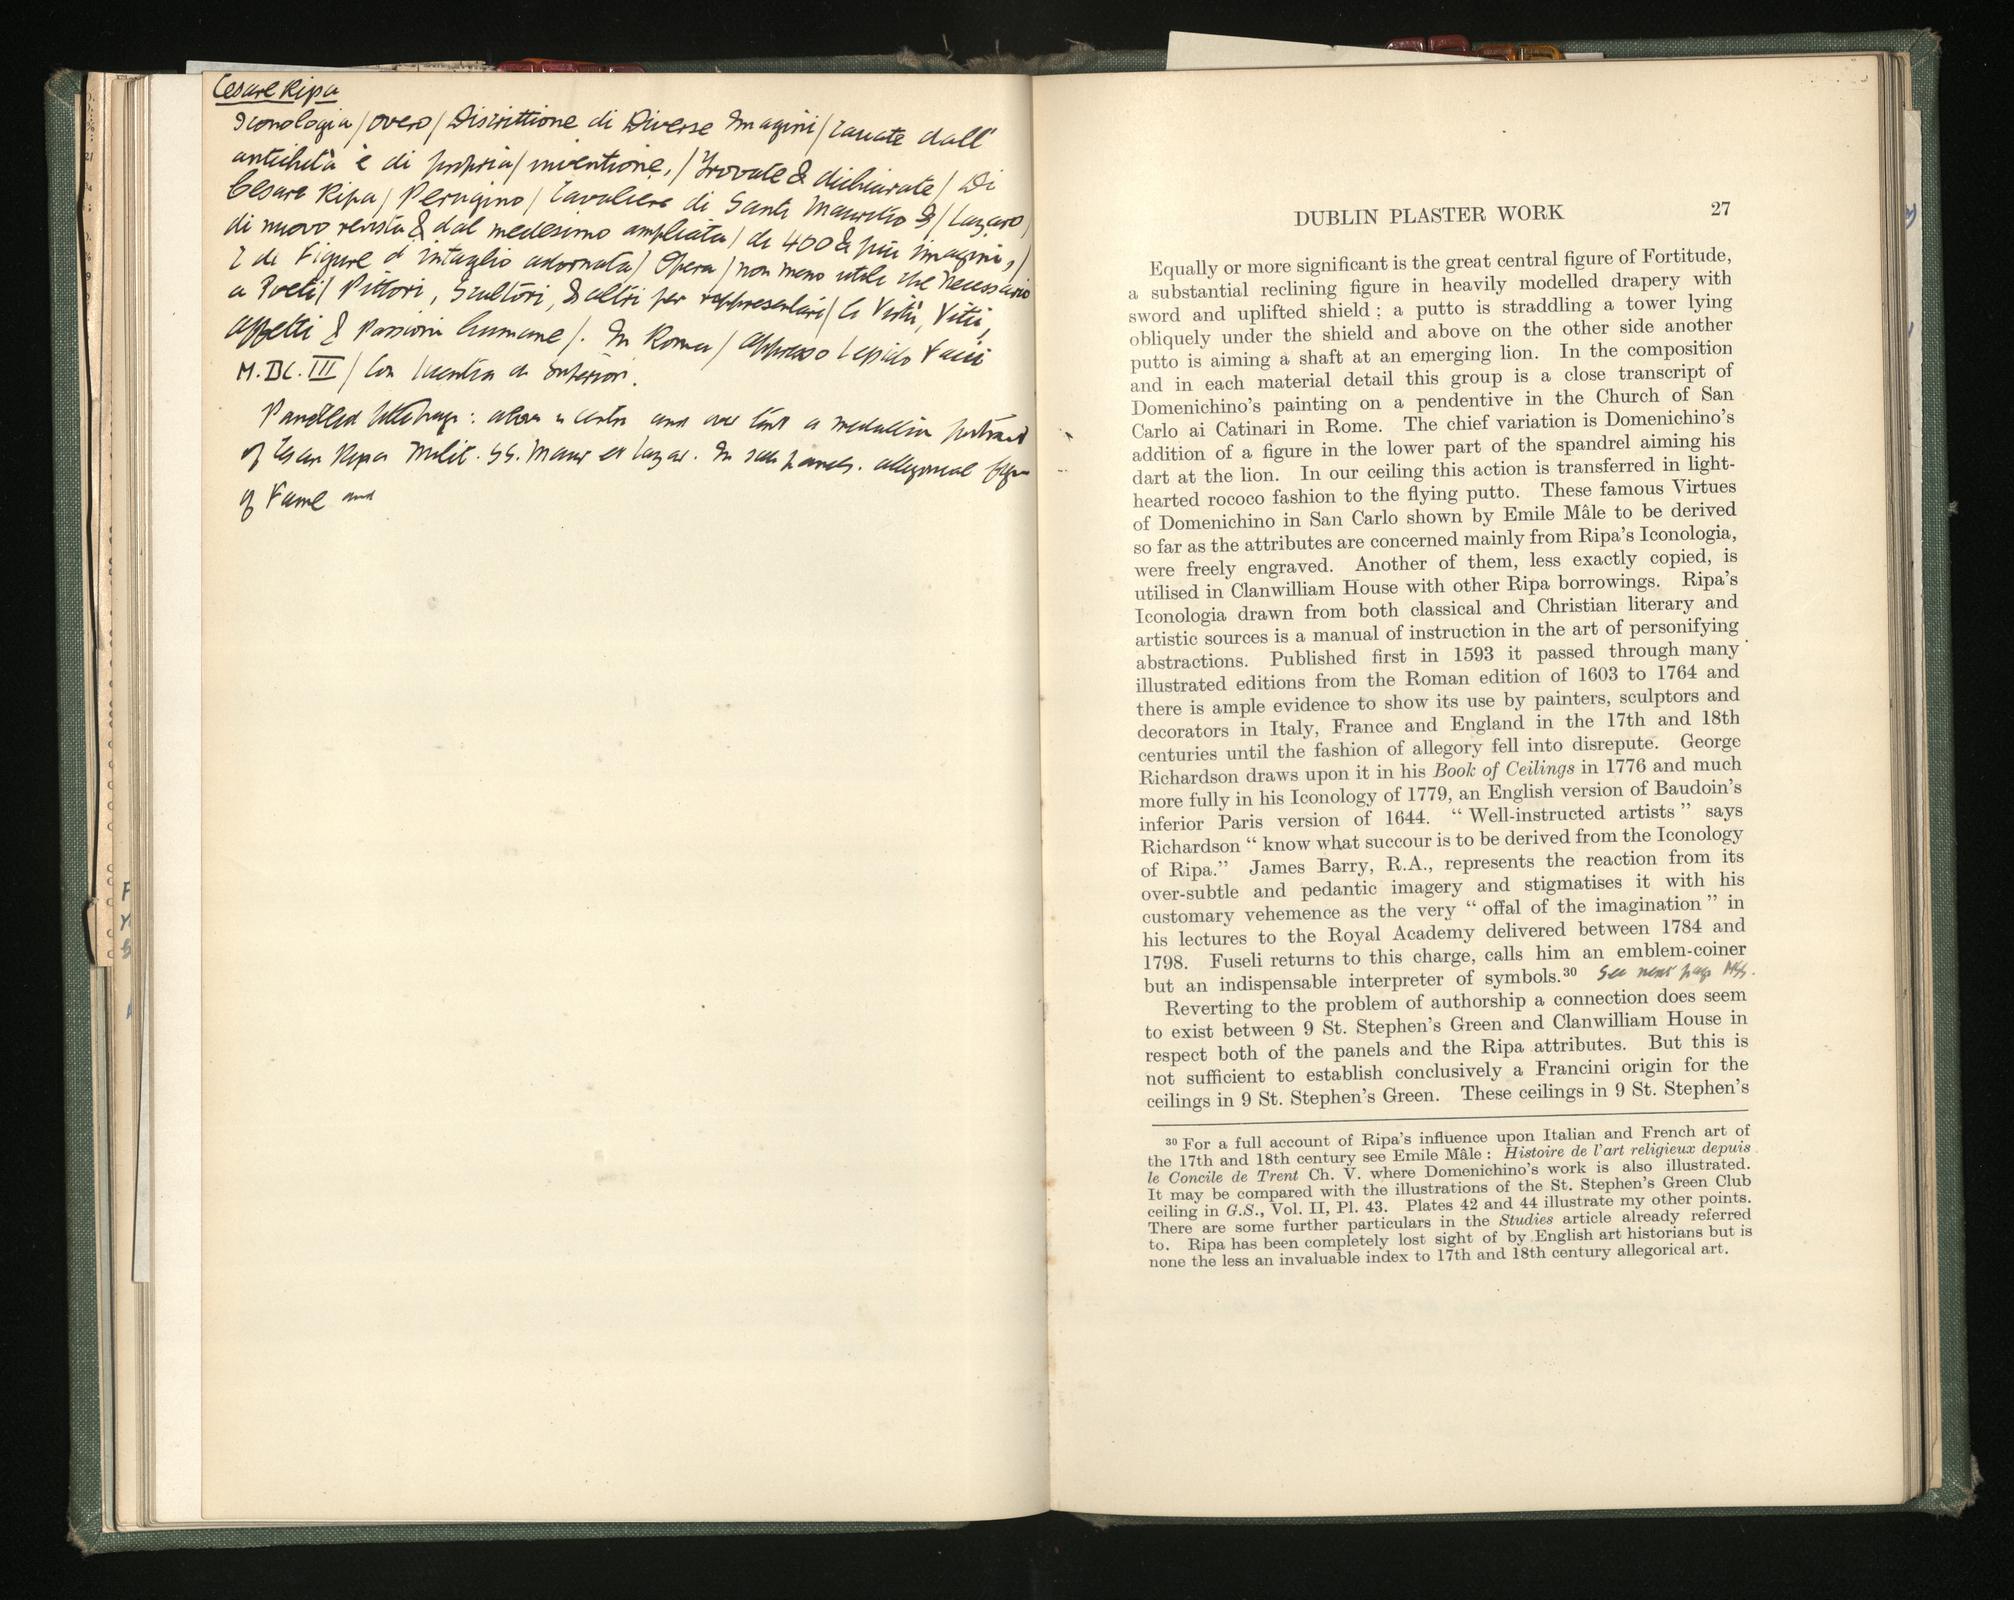 Cesare Ripa
Iconologia / overo / Discrittione di Diverse Imagini / cauate dall'
antichità è di propria / inventione, / Trovate & dichiarate / Di
Cesare Ripa / Perugino / Cavaliere di Santi Mauritio & / Lazaro /
di nuovo revista & dal medesimo ampliata / di 400 & più imagini, /
E di Figure d'intaglio adornata / Opera / non meno utile che Necessaria
a Poeti / Pittori, Scultori, & altri per rappresentare / le Virtù, Vitii,
affetti & Passioni humane /. In Roma / Appresso Lepido Facii
M.DC.III / Con licentia di Superiori.
Panelled title page: above in centre and over text a medallion portrait
of Cesar Ripa Milit. SS. Maur et Lazar. In side panels. allegorical figure
of Fame and
DUBLIN PLASTER WORK 27
Equally or more significant is the great central figure of Fortitude,
a substantial reclining figure in heavily modelled drapery with
sword and uplifted shield ; a putto is straddling a tower lying
obliquely under the shield and above on the other side another
putto is aiming a shaft at an emerging lion. In the composition
and in each material detail this group is a close transcript of
Domenichino's painting on a pendentive in the Church of San
Carlo ai Catinari in Rome. The chief variation is Domenichino's
addition of a figure in the lower part of the spandrel aiming his
dart at the lion. In our ceiling this action is transferred in light-
hearted rococo fashion to the flying putto. These famous Virtues
of Domenichino in San Carlo shown by Emile Mâle to be derived
so far as the attributes are concerned mainly from Ripa's Iconologia,
were freely engraved. Another of them, less exactly copied, is
utilised in Clanwilliam House with other Ripa borrowings. Ripa's
Iconologia drawn from both classical and Christian literary and
artistic sources is a manual of instruction in the art of personifying
abstractions. Published first in 1593 it passed through many
illustrated editions from the Roman edition of 1603 to 1764 and
there is ample evidence to show its use by painters, sculptors and
decorators in Italy, France and England in the 17th and 18th
centuries until the fashion of allegory fell into disrepute. George
Richardson draws upon it in his Book of Ceilings in 1776 and much
more fully in his Iconology of 1779, an English version of Baudoin's
inferior Paris version of 1644. “ Well-instructed artists ” says
Richardson “ know what succour is to be derived from the Iconology
of Ripa.” James Barry, R.A., represents the reaction from its
over-subtle and pedantic imagery and stigmatises it with his
customary vehemence as the very “ offal of the imagination ” in
his lectures to the Royal Academy delivered between 1784 and
1798. Fuseli returns to this charge, calls him an emblem-coiner
but an indispensable interpreter of symbols.³⁰ See next page
Reverting to the problem of authorship a connection does seem
to exist between 9 St. Stephen's Green and Clanwilliam House in
respect both of the panels and the Ripa attributes. But this is
not sufficient to establish conclusively a Francini origin for the
ceilings in 9 St. Stephen's Green. These ceilings in 9 St. Stephen's
³⁰ For a full account of Ripa's influence upon Italian and French art of
the 17th and 18th century see Emile Mâle : Histoire de l'art religieux depuis
le Concile de Trent Ch. V. where Domenichino's work is also illustrated.
It may be compared with the illustrations of the St. Stephen's Green Club
ceiling in G.S., Vol. II, Pl. 43. Plates 42 and 44 illustrate my other points.
There are some further particulars in the Studies article already referred
to. Ripa has been completely lost sight of by English art historians but is
none the less an invaluable index to 17th and 18th century allegorical art.